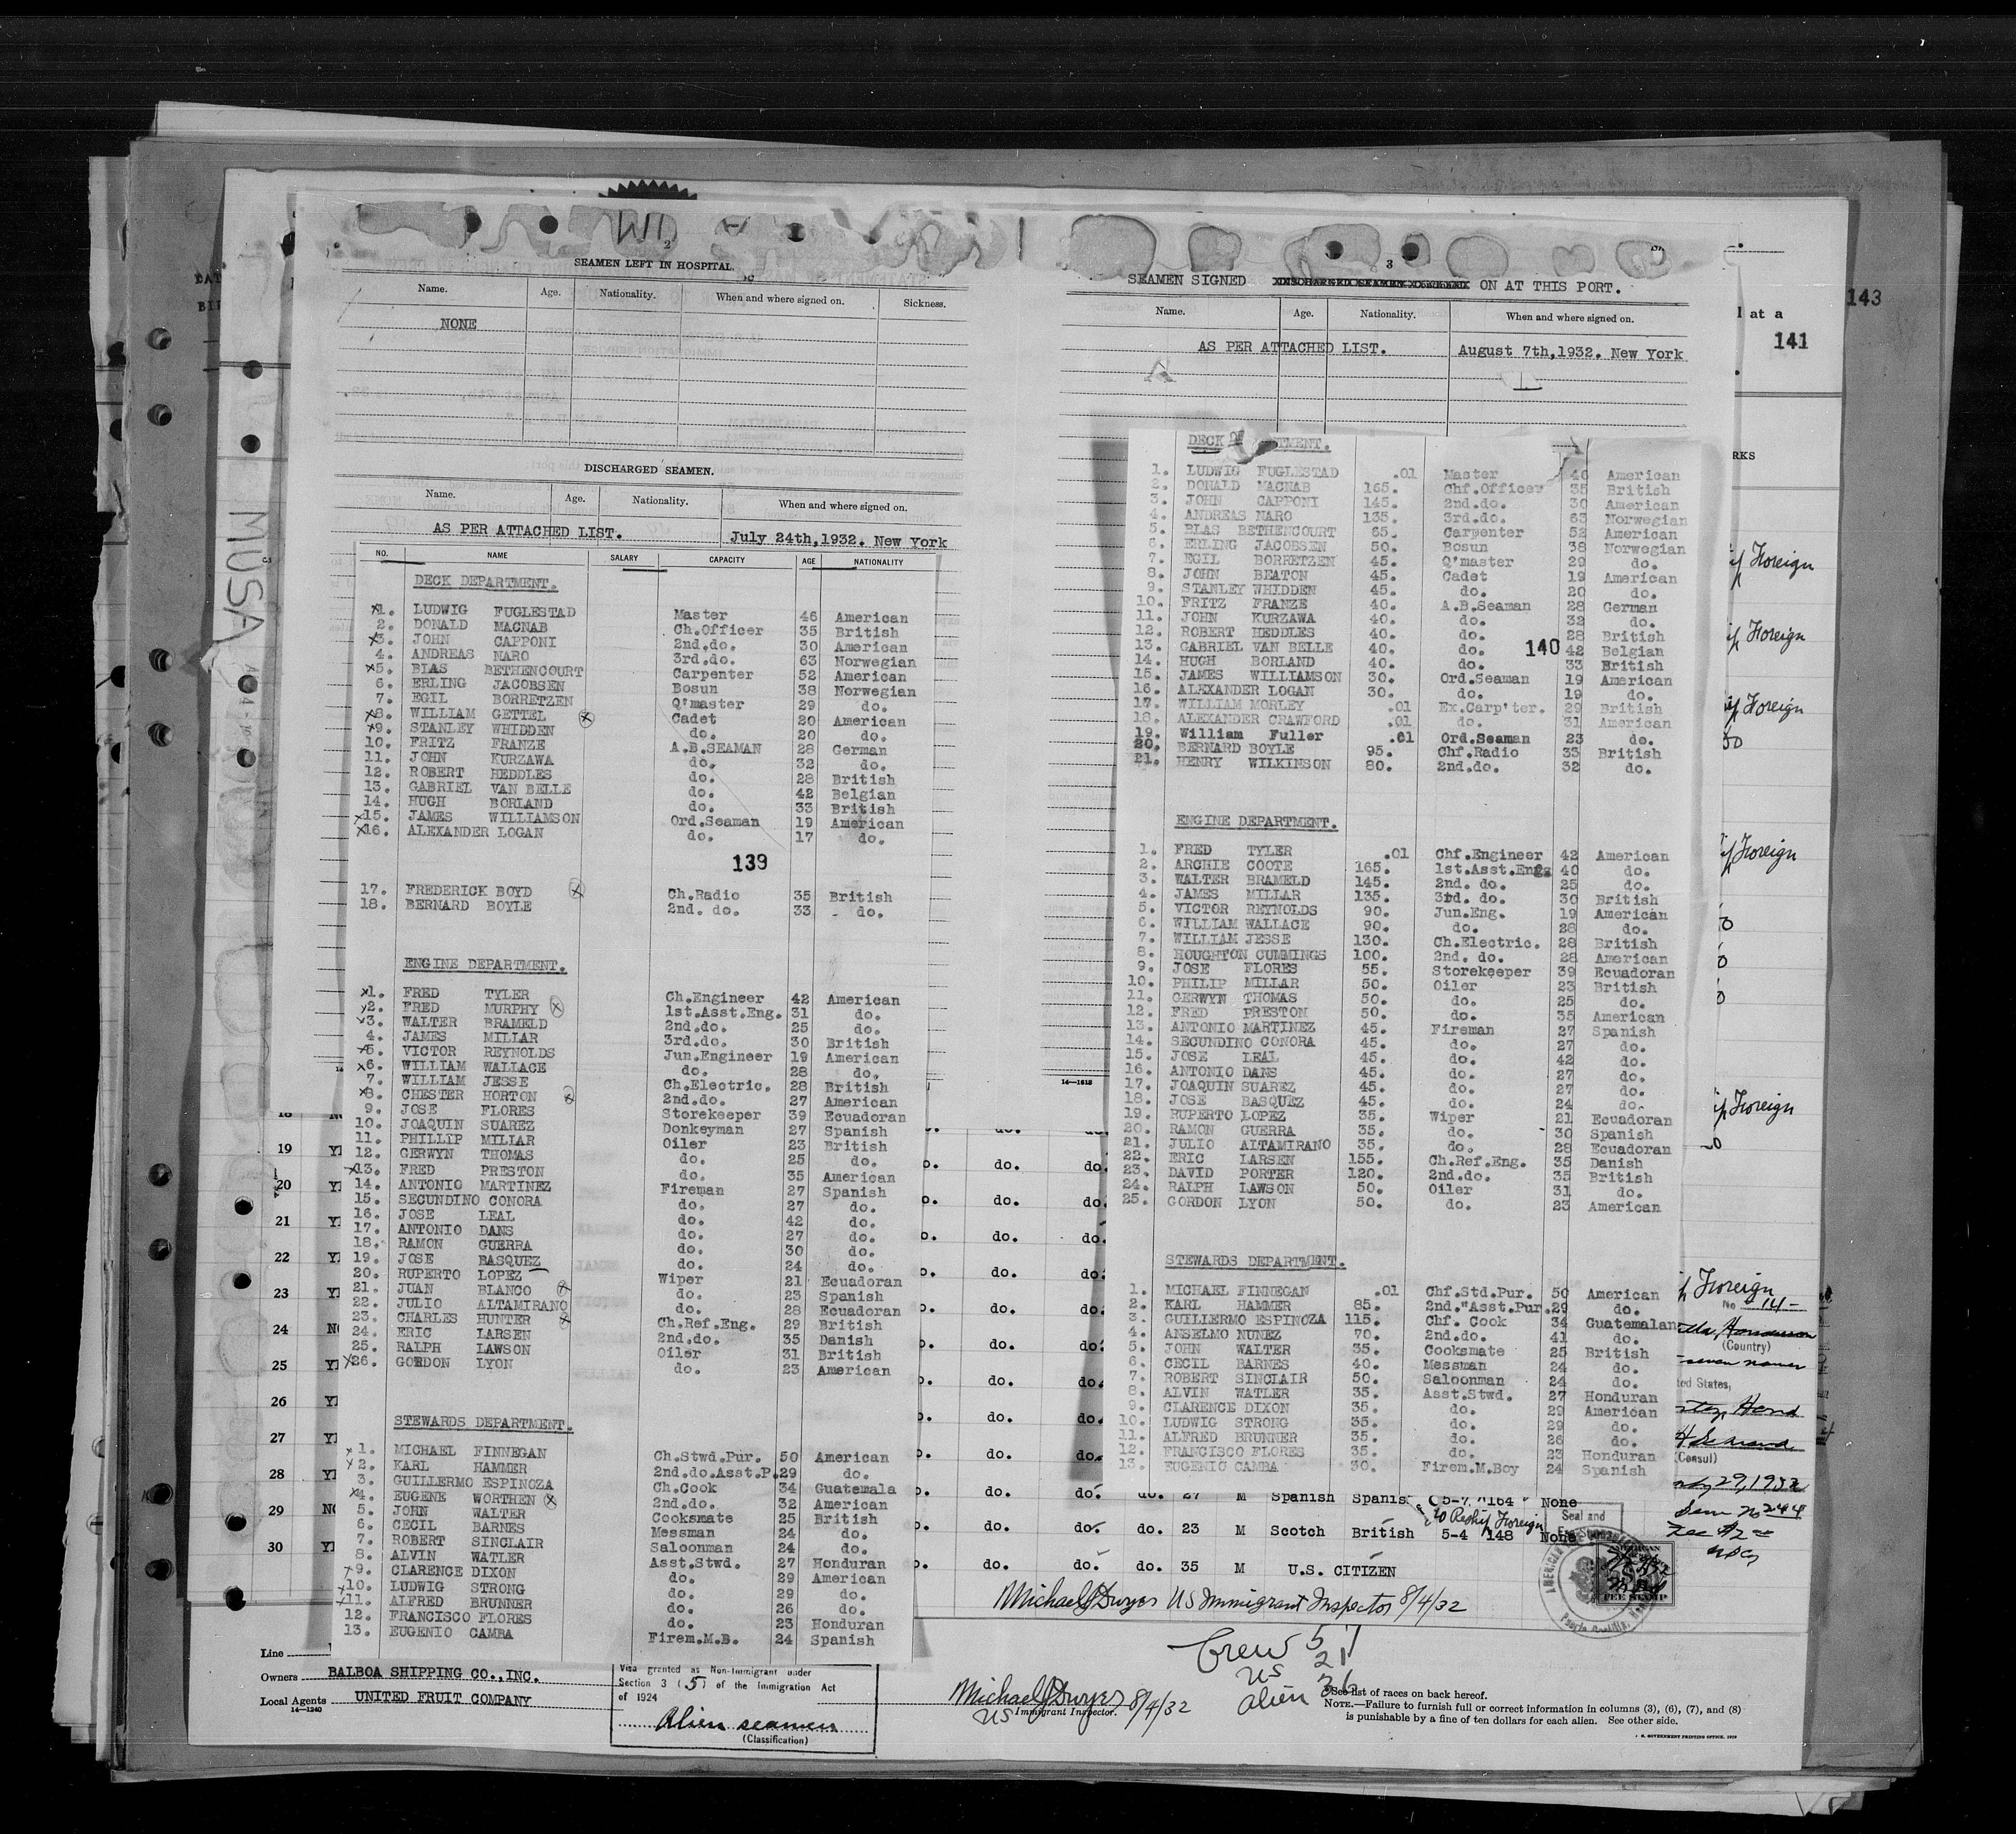 2
SEAMEN LEFT IN HOSPITAL.
Name. Age. Nationality. When and where signed on. Sickness.
NONE
DISCHARGED SEAMEN.
Name. Age. Nationality. When and where signed on.
AS PER ATTACHED LIST. July 24th,1932. New York
NO. NAME SALARY CAPACITY AGE NATIONALITY
DECK DEPARTMENT.
x1. LUDWIG FUGLESTAD Master 46 American
2. DONALD MACNAB Ch.Officer 35 British
x3. JOHN CAPPONI 2nd.do. 30 American
4. ANDREAS NARO 3rd.do. 63 Norwegian
x5. BLAS BETHENCOURT Carpenter 52 American
6. ERLING JACOBSEN Bosun 38 Norwegian
7. EGIL BORRETZEN Q'master 29 do.
x8. WILLIAM GETTEL x Cadet 20 American
x9. STANLEY WHIDDEN do. 20 do.
10. FRITZ FRANZE A.B.SEAMAN 28 German
11. JOHN KURZAWA do. 32 do.
12. ROBERT HEDDLES do. 28 British
13. GABRIEL VAN BELLE do. 42 Belgian
14. HUGH BORLAND do. 33 British
x15. JAMES WILLIAMSON Ord.Seaman 19 American
x16. ALEXANDER LOGAN do. 17 do.
139
17. FREDERICK BOYD x Ch.Radio 35 British
18. BERNARD BOYLE 2nd. do. 33 do.
ENGINE DEPARTMENT.
x1. FRED TYLER Ch.Engineer 42 American
x2. FRED MURPHY x 1st.Asst.Eng. 31 do.
x3. WALTER BRAMELD 2nd.do. 25 do.
4. JAMES MILLAR 3rd.do. 30 British
x5. VICTOR REYNOLDS Jun.Engineer 19 American
x6. WILLIAM WALLACE do. 28 do.
7. WILLIAM JESSE Ch.Electric. 28 British
x8. CHESTER HORTON x 2nd.do. 27 American
9. JOSE FLORES Storekeeper 39 Ecuadoran
10. JOAQUIN SUAREZ Donkeyman 27 Spanish
11. PHILLIP MILLAR Oiler 23 British
12. GERWYN THOMAS do. 25 do.
x13. FRED PRESTON do. 35 American
14. ANTONIO MARTINEZ Fireman 27 Spanish
15. SECUNDINO CONORA do. 27 do.
16. JOSE LEAL do. 42 do.
17. ANTONIO DANS do. 27 do.
18. RAMON GUERRA do. 30 do.
19. JOSE BASQUEZ do. 24 do.
20. RUPERTO LOPEZ Wiper 21 Ecuadoran
21. JUAN BLANCO x do. 23 Spanish
22. JULIO ALTAMIRANO do. 28 Ecuadoran
23. CHARLES HUNTER x Ch.Ref.Eng. 29 British
24. ERIC LARSEN 2nd.do. 35 Danish
25. RALPH LAWSON Oiler 31 British
x26. GORDON LYON do. 23 American
STEWARDS DEPARTMENT.
x1. MICHAEL FINNEGAN Ch.Stwd.Pur. 50 American
x2. KARL HAMMER 2nd.do.Asst.P. 29 do.
3. GUILLERMO ESPINOZA Ch.Cook 34 Guatemala
x4. EUGENE WORTHEN x 2nd.do. 32 American
5. JOHN WALTER Cooksmate 25 British
6. CECIL BARNES Messman 24 do.
7. ROBERT SINCLAIR Saloonman 24 do.
8. ALVIN WATLER Asst.Stwd. 27 Honduran
x9. CLARENCE DIXON do. 29 American
x10. LUDWIG STRONG do. 29 do.
x11. ALFRED BRUNNER do. 26 do.
12. FRANCISCO FLORES do. 23 Honduran
13. EUGENIO CAMBA Firem.M.B. 24 Spanish
3
SEAMEN SIGNED ON AT THIS PORT.
Name. Age. Nationality. When and where signed on.
AS PER ATTACHED LIST. August 7th,1932. New York
1. LUDWIG FUGLESTAD .01 Master 46 American
2. DONALD MACNAB 165. Chf.Officer 35 British
3. JOHN CAPPONI 145. 2nd.do. 30 American
4. ANDREAS NARO 135. 3rd.do. 63 Norwegian
5. BLAS BETHENCOURT 65. Carpenter 52 American
6. ERLING JACOBSEN 50. Bosun 38 Norwegian
7. EGIL BORRETZEN 45. Q'master 29 do.
8. JOHN BEATON 45. Cadet 19 American
9. STANLEY WHIDDEN 45. do. 20 do.
10. FRITZ FRANZE 40. A.B.Seaman 28 German
11. JOHN KURZAWA 40. do. 32 do.
12. ROBERT HEDDLES 40. do. 28 British
13. GABRIEL VAN BELLE 40. do. 140 42 Belgian
14. HUGH BORLAND 40. do. 33 British
15. JAMES WILLIAMSON 30. Ord.Seaman 19 American
16. ALEXANDER LOGAN 30. do. 19 do.
17. WILLIAM MORLEY .01 Ex.Carp'ter. 29 British
18. ALEXANDER CRAWFORD .01 do. 31 American
19. William Fuller .01 Ord.Seaman 23 do.
20. BERNARD BOYLE 95. Chf.Radio 33 British
21. HENRY WILKINSON 80. 2nd.do. 32 do.
ENGINE DEPARTMENT.
1. FRED TYLER .01 Chf.Engineer 42 American
2. ARCHIE COOTE 165. 1st.Asst.Eng. 40 do.
3. WALTER BRAMELD 145. 2nd. do. 25 do.
4. JAMES MILLAR 135. 3rd. do. 30 British
5. VICTOR REYNOLDS 90. Jun.Eng. 19 American
6. WILLIAM WALLACE 90. do. 28 do.
7. WILLIAM JESSE 130. Ch.Electric. 28 British
8. HOUGHTON CUMMINGS 100. 2nd. do. 28 American
9. JOSE FLORES 55. Storekeeper 39 Ecuadoran
10. PHILIP MILLAR 50. Oiler 23 British
11. GERWYN THOMAS 50. do. 25 do.
12. FRED PRESTON 50. do. 35 American
13. ANTONIO MARTINEZ 45. Fireman 27 Spanish
14. SECUNDINO CONORA 45. do. 27 do.
15. JOSE LEAL 45. do. 42 do.
16. ANTONIO DANS 45. do. 27 do.
17. JOAQUIN SUAREZ 45. do. 27 do.
18. JOSE BASQUEZ 45. do. 24 do.
19. RUPERTO LOPEZ 35. Wiper 21 Ecuadoran
20. RAMON GUERRA 35. do. 30 Spanish
21. JULIO ALTAMIRANO 35. do. 28 Ecuadoran
22. ERIC LARSEN 155. Ch.Ref.Eng. 35 Danish
23. DAVID PORTER 120. 2nd.do. 35 British
24. RALPH LAWSON 50. Oiler 31 do.
25. GORDON LYON 50. do. 23 American
STEWARDS DEPARTMENT.
1. MICHAEL FINNEGAN .01 Chf.Std.Pur. 50 American
2. KARL HAMMER 85. 2nd."Asst.Pur. 29 do.
3. GUILLERMO ESPINOZA 115. Chf. Cook 34 Guatemalan
4. ANSELMO NUNEZ 70. 2nd.do. 41 do.
5. JOHN WALTER 35. Cooksmate 25 British
6. CECIL BARNES 40. Messman 24 do.
7. ROBERT SINCLAIR 50. Saloonman 24 do.
8. ALVIN WATLER 35. Asst.Stwd. 27 Honduran
9. CLARENCE DIXON 35. do. 29 American
10. LUDWIG STRONG 35. do. 29 do.
11. ALFRED BRUNNER 35. do. 26 do.
12. FRANCISCO FLORES 35. do. 23 Honduran
13. EUGENIO CAMBA 30. Firem.M.Boy 24 Spanish
143
l at a
141
RKS
Foreign
Foreign
Foreign
Foreign
Foreign
Foreign
No 14-
(Country)
ted States,
(Consul)
29, 1932
MUSA
18
19
20
21
22
23
24
25
26
27
28
29
30
do. do. do. 27 M Spanish Spanis 5-7 164 None
to Reship Foreign
do. do. do. 23 M Scotch British 5-4 148 None
do. do. do. 35 M U.S. CITIZEN
Seal and
FEE STAMP
Michael J Dwyer US Immigrant Inspector 8/4/32
Crew 57
US 21
alien 36
Line
Owners BALBOA SHIPPING CO.,INC.
Local Agents UNITED FRUIT COMPANY
14—1240
Visa granted as Non-Immigrant under
Section 3 (5) of the Immigration Act
of 1924
Alien seamen
(Classification)
Michael J Dwyer 8/4/32
US Immigrant Inspector.
See list of races on back hereof.
NOTE.—Failure to furnish full or correct information in columns (3), (6), (7), and (8)
is punishable by a fine of ten dollars for each alien. See other side.
U. S. GOVERNMENT PRINTING OFFICE. 1929